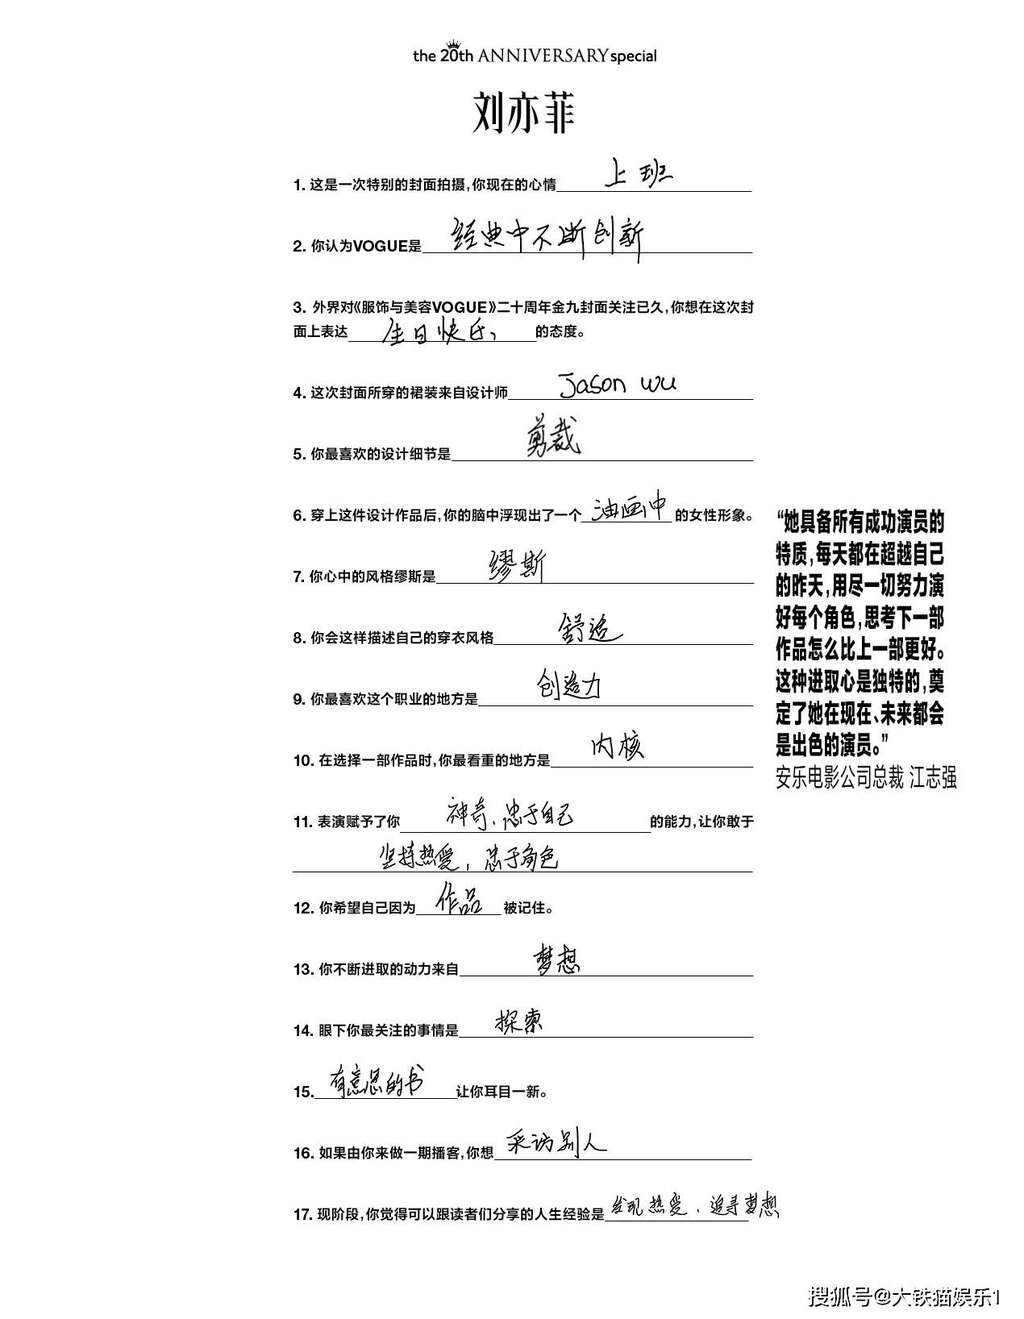 the 20th ANNIVERSARY special
刘亦菲
1. 这是一次特别的封面拍摄,你现在的心情 上班
2. 你认为VOGUE是 经典中不断创新
3. 外界对《服饰与美容VOGUE》二十周年金九封面关注已久,你想在这次封
面上表达 生日快乐, 的态度。
4. 这次封面所穿的裙装来自设计师 Jason wu
5. 你最喜欢的设计细节是 剪裁
6. 穿上这件设计作品后,你的脑中浮现出了一个 油画中 的女性形象。
7. 你心中的风格缪斯是 缪斯
8. 你会这样描述自己的穿衣风格 舒适
9. 你最喜欢这个职业的地方是 创造力
10. 在选择一部作品时,你最看重的地方是 内核
11. 表演赋予了你 神奇、忠于自己 的能力,让你敢于
坚持热爱,忠于角色
12. 你希望自己因为 作品 被记住。
13. 你不断进取的动力来自 梦想
14. 眼下你最关注的事情是 探索
15. 有意思的书 让你耳目一新。
16. 如果由你来做一期播客,你想 采访别人
17. 现阶段,你觉得可以跟读者们分享的人生经验是 发现热爱、追寻梦想
“她具备所有成功演员的
特质,每天都在超越自己
的昨天,用尽一切努力演
好每个角色,思考下一部
作品怎么比上一部更好。
这种进取心是独特的,奠
定了她在现在、未来都会
是出色的演员。”
安乐电影公司总裁 江志强
搜狐号@大铁猫娱乐1